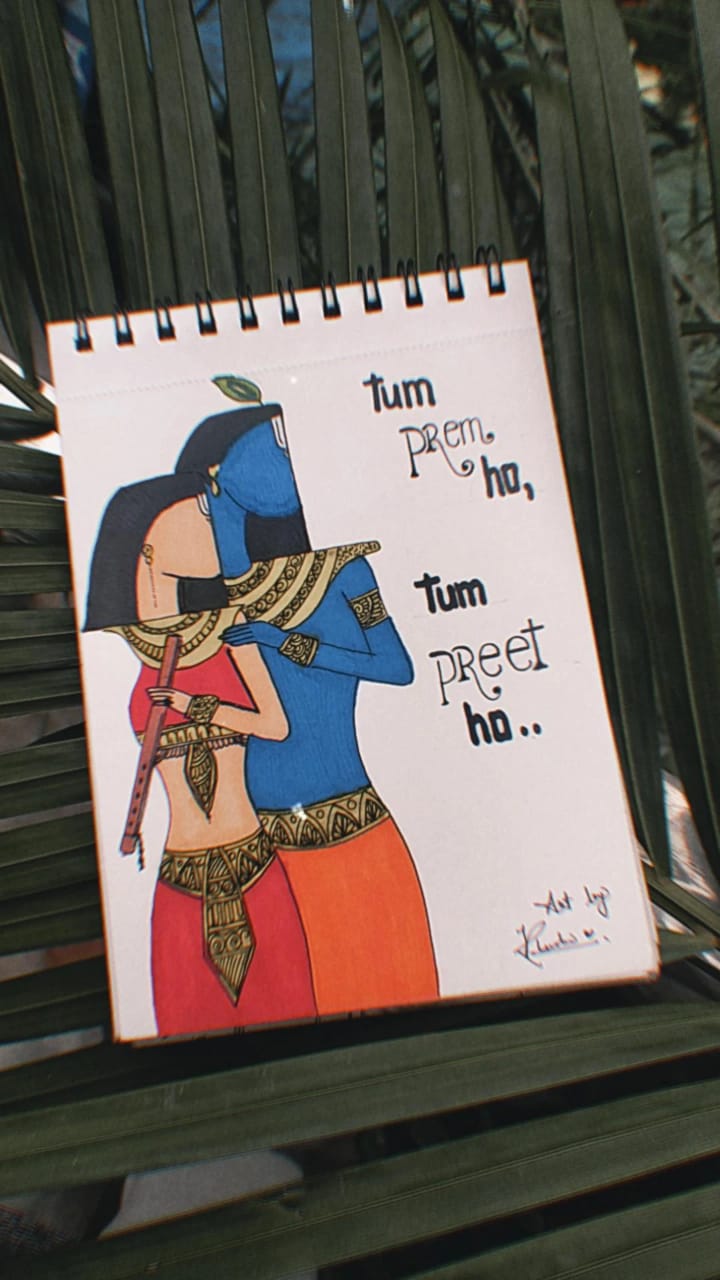 tum
prem
ho,
tum
preet
ho..
Art by